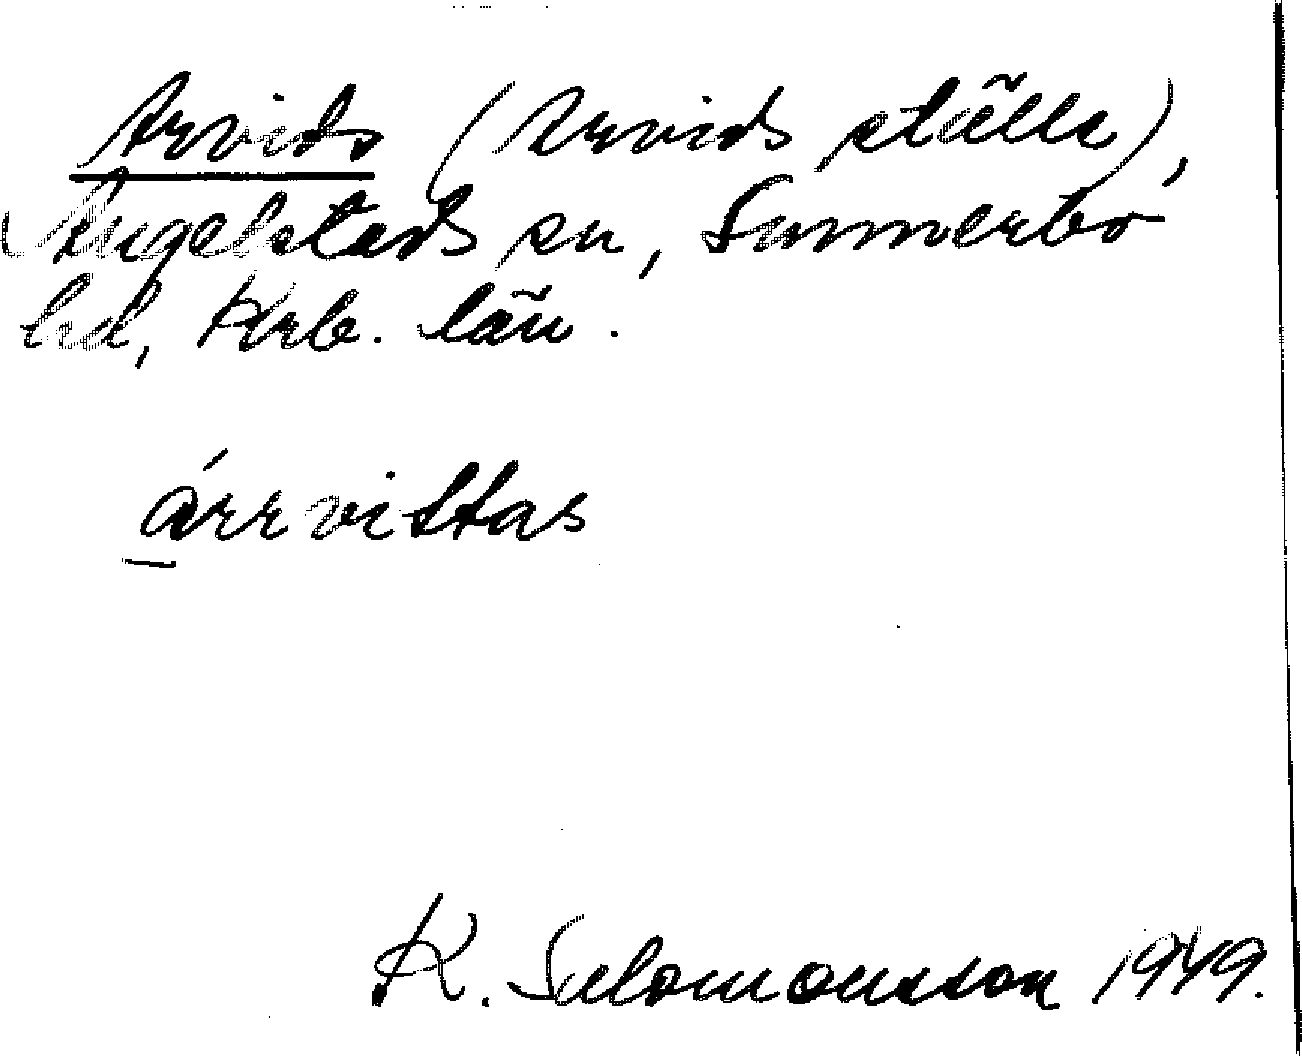 Arvids (Arvids ställe),
Angelstads sn, Sunnerbo
hd, Krb. län.
árrvittas
K. Salomonsson 1949.